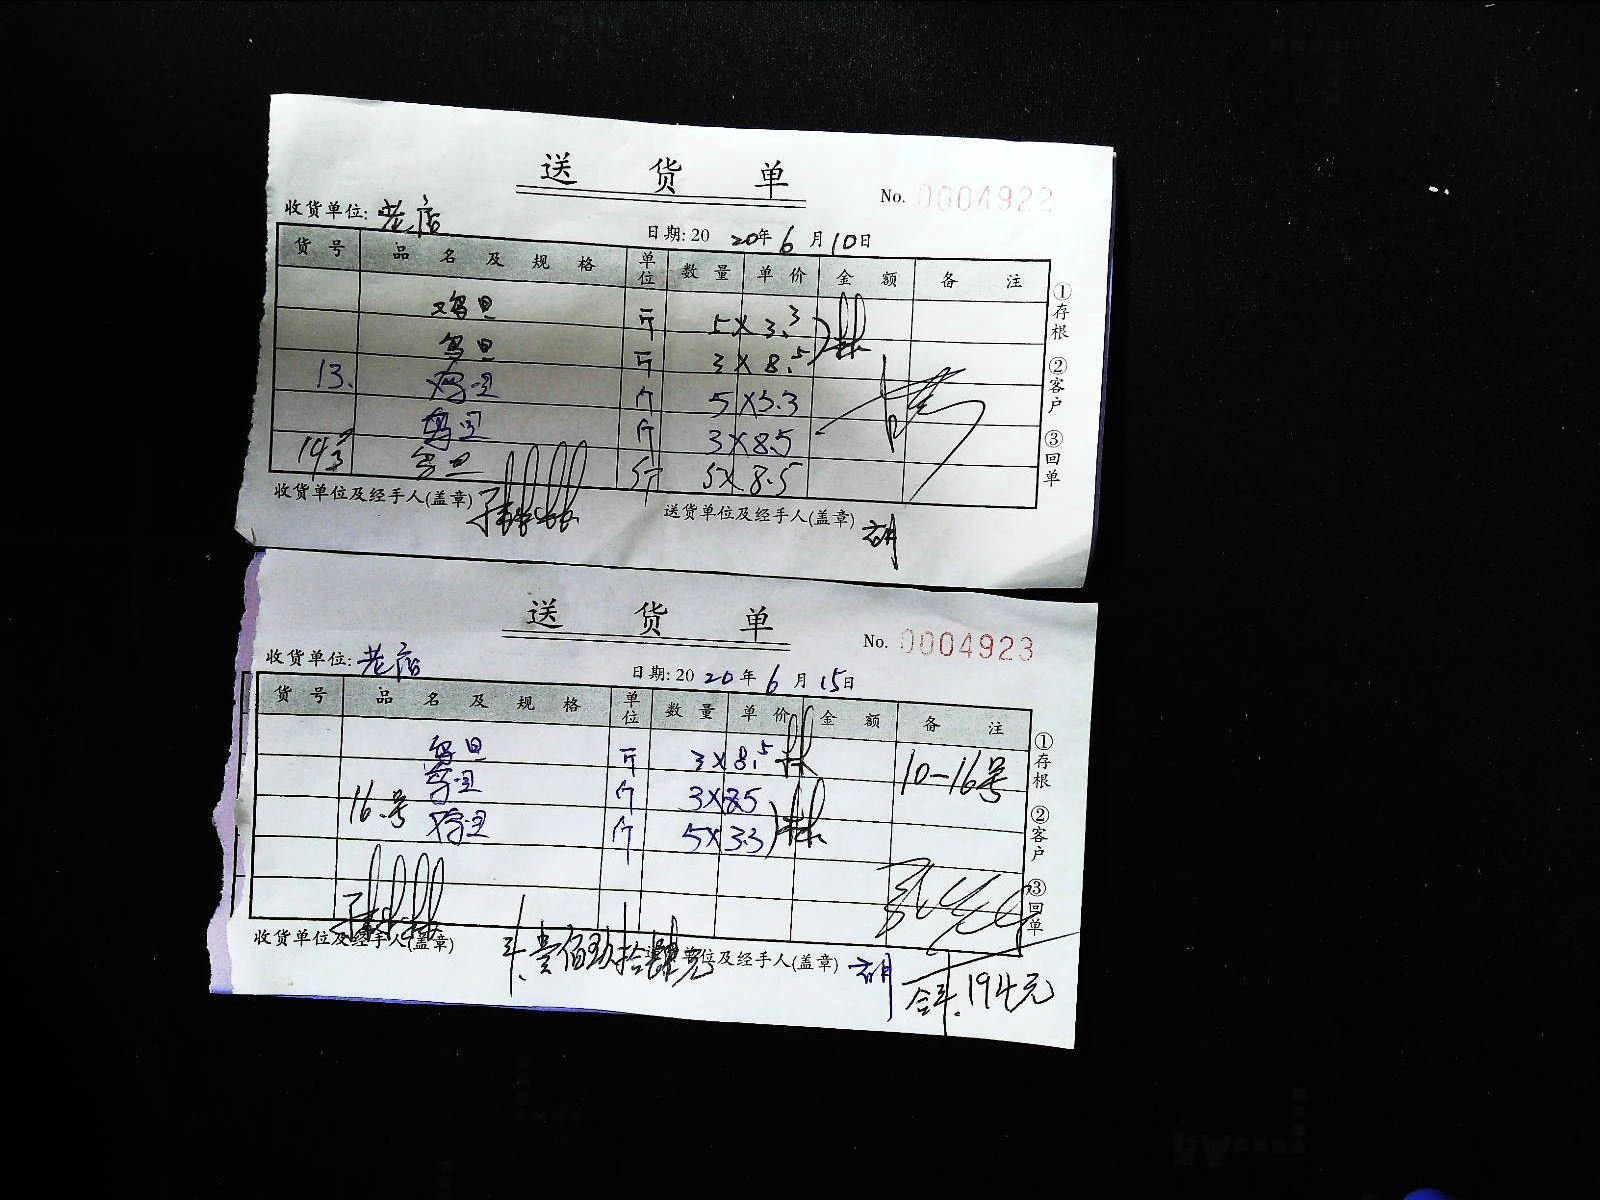 送 货 单
No. 0004922
收货单位: 老店
日期: 20 20年 6 月 10日
货 号 品 名 及 规 格 单位 数 量 单 价 金 额 备 注
鸡旦 斤 5 X 3.3
鸟旦 斤 3 X 8.5
13. 鸡旦 斤 5 X 3.3
鸟旦 斤 3 X 8.5
14号 鸟旦 斤 5 X 8.5
收货单位及经手人(盖章)
送货单位及经手人(盖章) 胡
①存根 ②客户 ③回单
送 货 单
No. 0004923
收货单位: 老店
日期: 20 20 年 6 月 15日
货 号 品 名 及 规 格 单位 数 量 单 价 金 额 备 注
鸟旦 斤 3 X 8.5 10-16号
鸟旦 斤 3 X 8.5
16.号 鸡旦 斤 5 X 3.3
收货单位及经手人(盖章)
壹佰玖拾肆元
位及经手人(盖章) 胡
194元
①存根 ②客户 ③回单